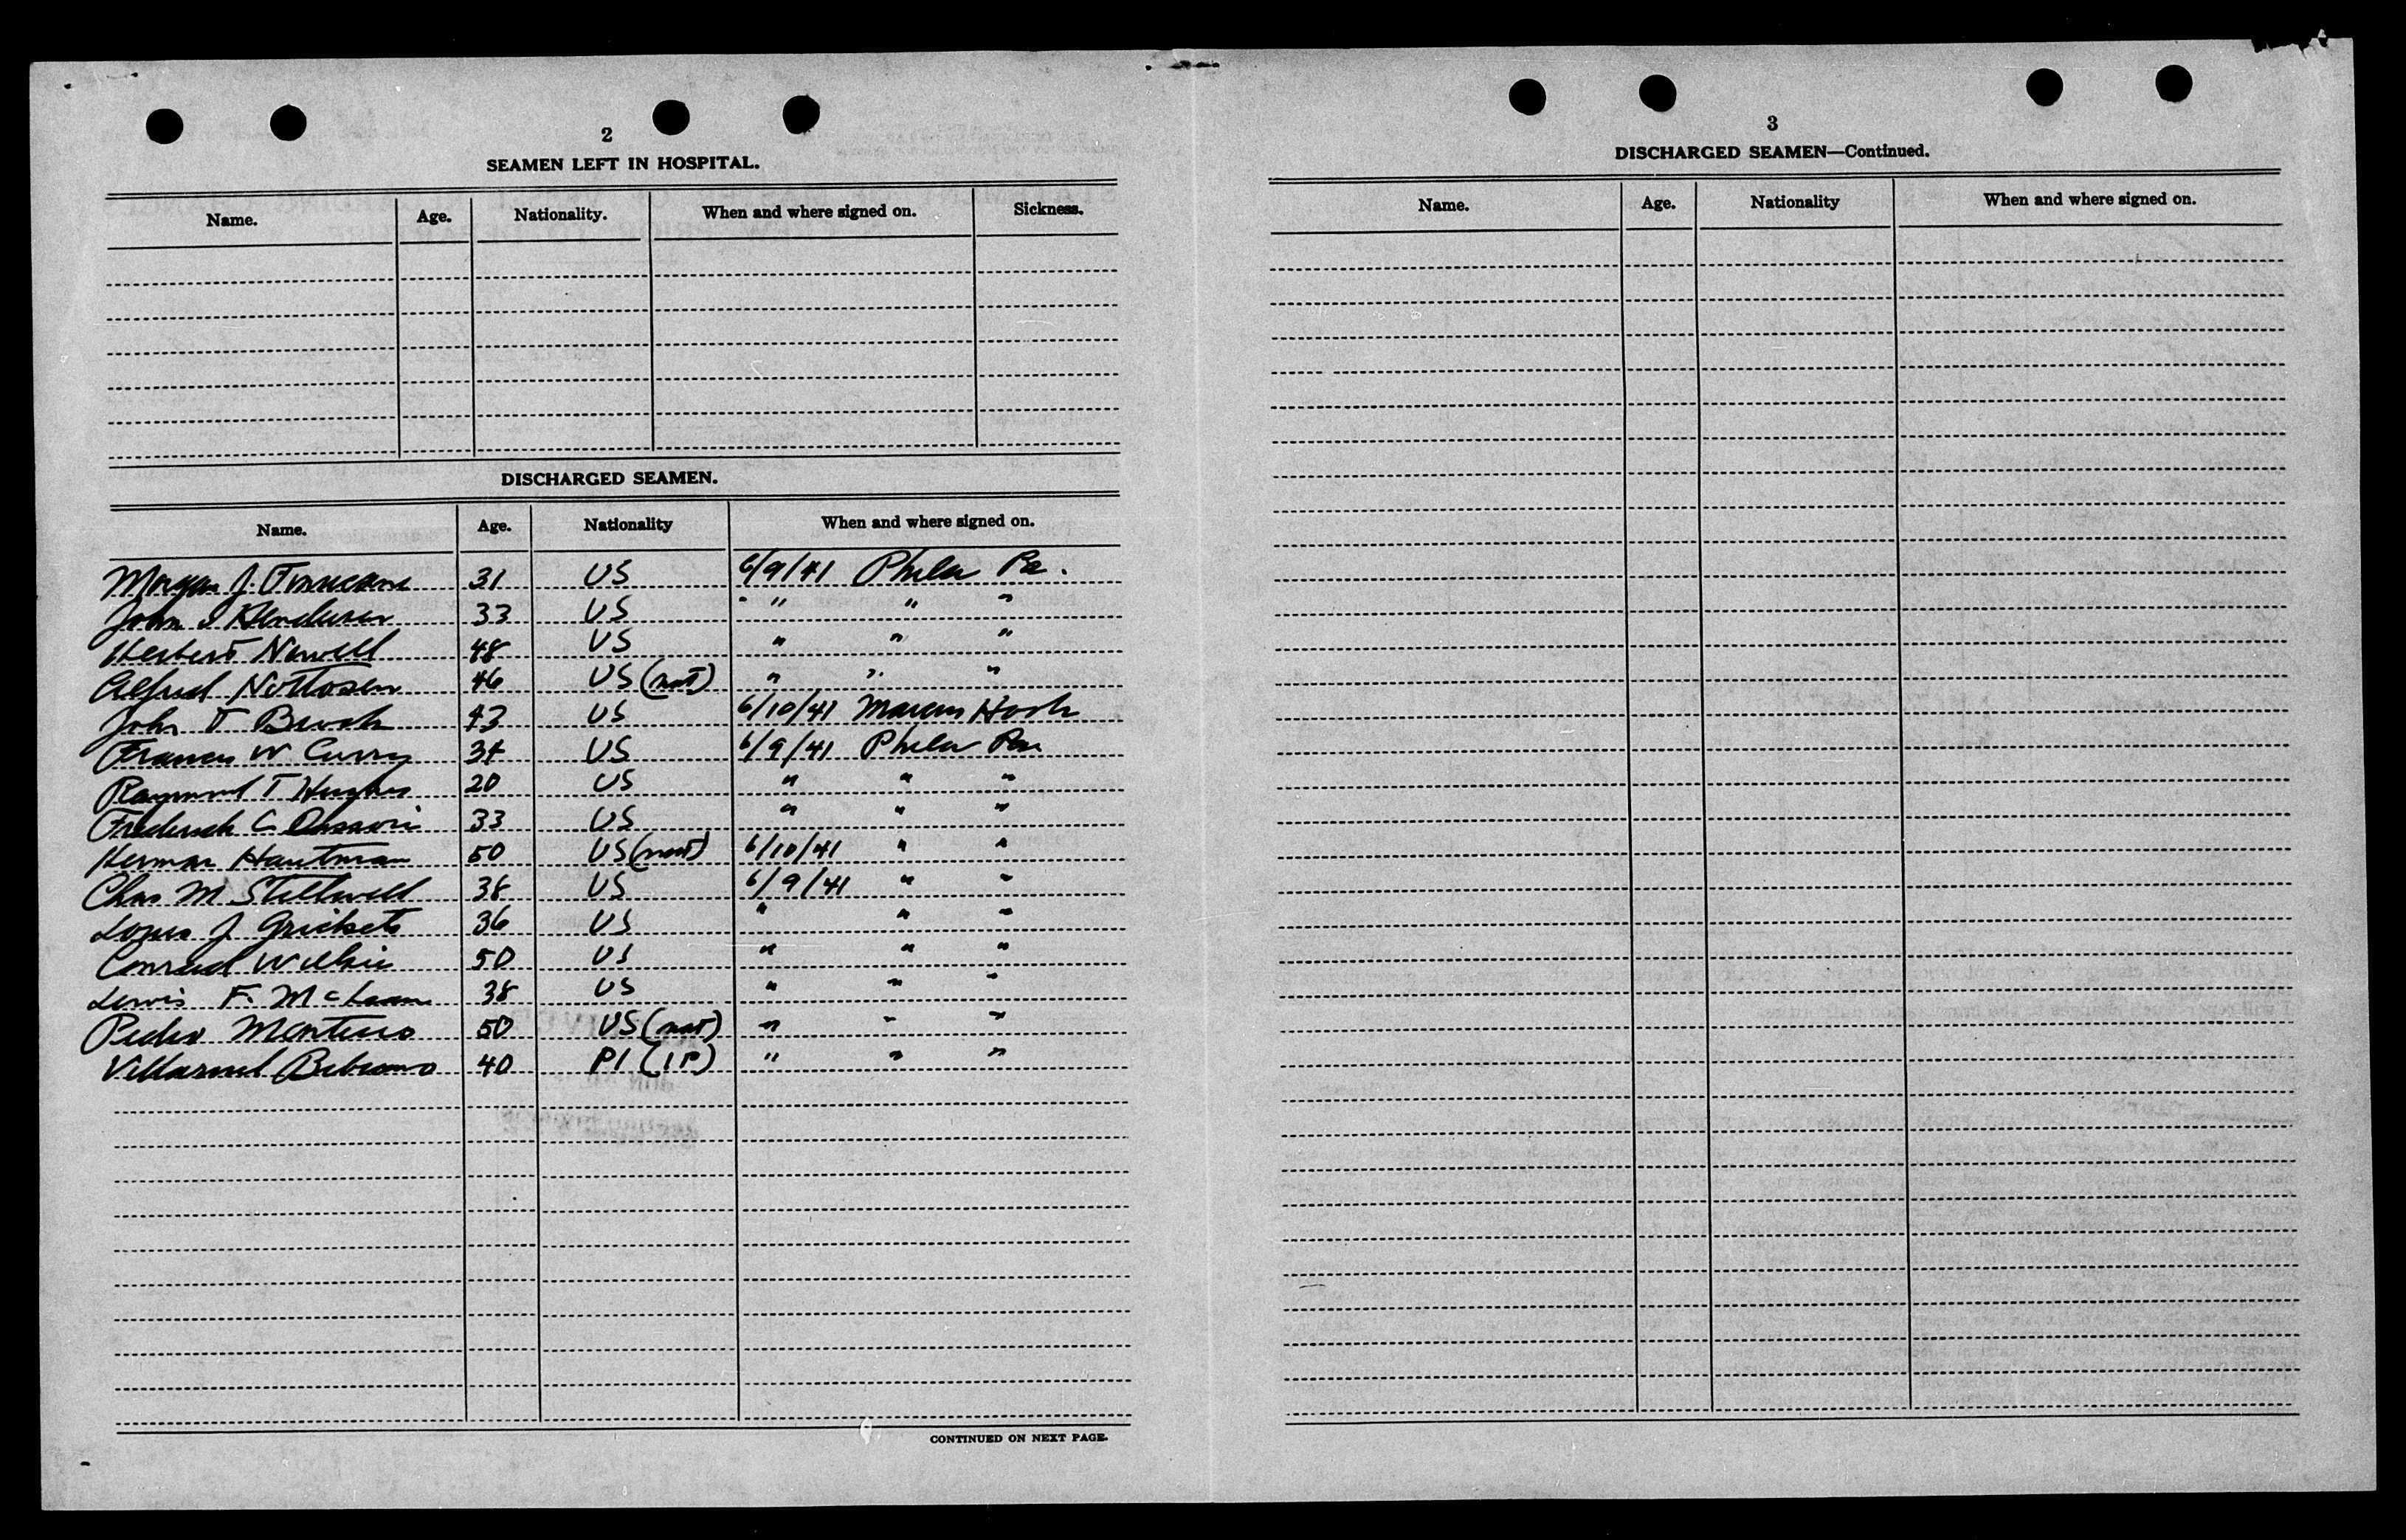 2
SEAMEN LEFT IN HOSPITAL.
Name. Age. Nationality. When and where signed on. Sickness.
DISCHARGED SEAMEN.
Name. Age. Nationality When and where signed on.
Morgan J. Finucane 31 US 6/9/41 Phila Pa.
John S Henderson 33 US " " " "
Herbert Newell 48 US " " "
Alfred 46 US (nat) " " "
John T 43 US 6/10/41 Marcus Hook
Francis W Curry 34 US 6/9/41 Phila Pa
Raymond T Hughes 20 US " " "
Frederick C 33 US " " "
Herman Hautman 50 US (nat) 6/10/41 " "
Chas M Stillwell 38 US 6/9/41 " "
Louis J 36 US " " "
Conrad Wilkie 50 US " " "
Lewis F. McLean 38 US " " "
Pedro Monteiro 50 US (nat) " " "
Villaruel Bibiano 40 PI (1P) " " "
CONTINUED ON NEXT PAGE.
3
DISCHARGED SEAMEN—Continued.
Name. Age. Nationality When and where signed on.